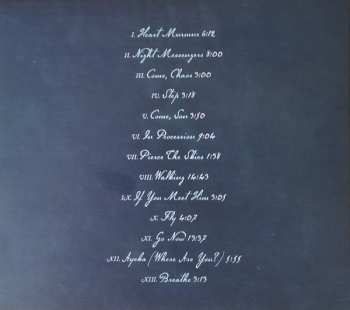 I. Heart Murmurs 6:12
II. Night Messengers 8:00
III. Come, Chaos 3:00
IV. Stop 3:18
V. Come, Son 3:50
VI. In Procession 9:04
VII. Pierce The Skies 1:38
VIII. Walking 14:43
IX. If You Meet Him 3:05
X. Fly 4:07
XI. Go Now 13:37
XII. Ayeka (Where Are You?) 5:55
XIII. Breathe 3:13